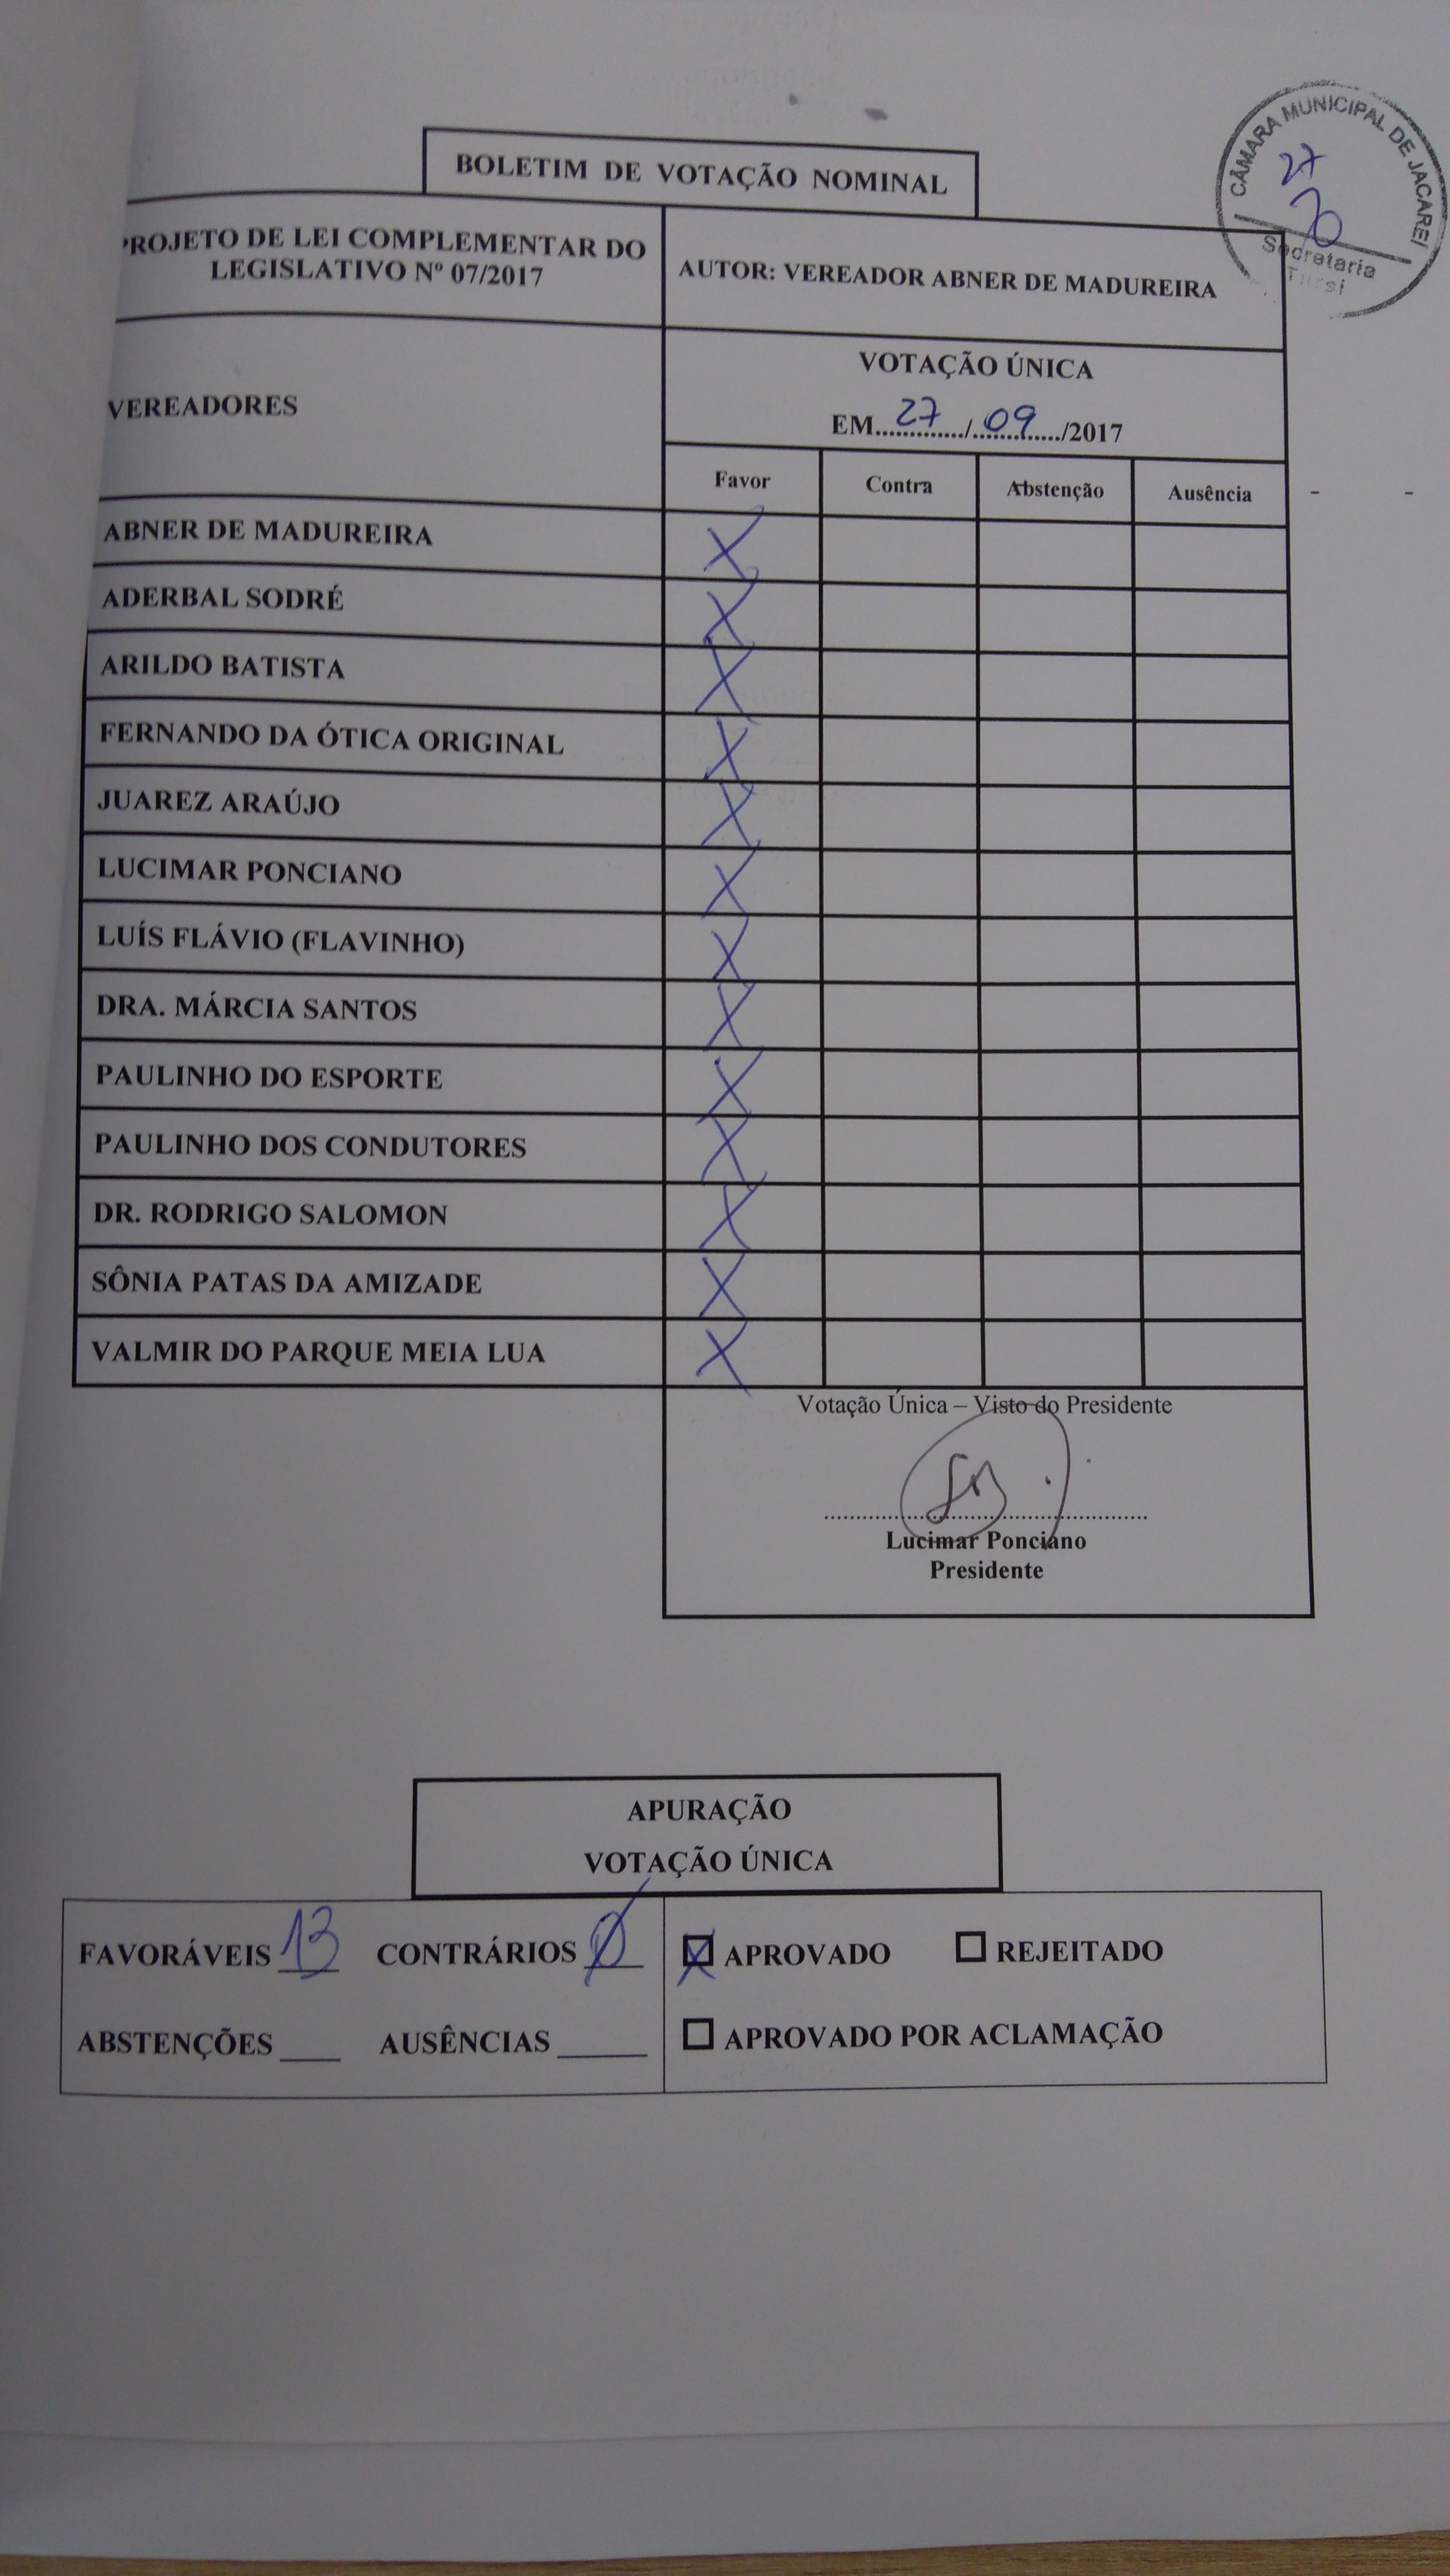 CÂMARA MUNICIPAL DE JACAREÍ
27
Secretaria
BOLETIM DE VOTAÇÃO NOMINAL
PROJETO DE LEI COMPLEMENTAR DO
LEGISLATIVO Nº 07/2017
AUTOR: VEREADOR ABNER DE MADUREIRA
VEREADORES
VOTAÇÃO ÚNICA
EM....27..../....09..../2017
Favor Contra Abstenção Ausência
ABNER DE MADUREIRA X
ADERBAL SODRÉ X
ARILDO BATISTA X
FERNANDO DA ÓTICA ORIGINAL X
JUAREZ ARAÚJO X
LUCIMAR PONCIANO X
LUÍS FLÁVIO (FLAVINHO) X
DRA. MÁRCIA SANTOS X
PAULINHO DO ESPORTE X
PAULINHO DOS CONDUTORES X
DR. RODRIGO SALOMON X
SÔNIA PATAS DA AMIZADE X
VALMIR DO PARQUE MEIA LUA X
Votação Única – Visto do Presidente
Lucimar Ponciano
Presidente
APURAÇÃO
VOTAÇÃO ÚNICA
FAVORÁVEIS 13 CONTRÁRIOS 0
ABSTENÇÕES ____ AUSÊNCIAS ______
☒ APROVADO ☐ REJEITADO
☐ APROVADO POR ACLAMAÇÃO